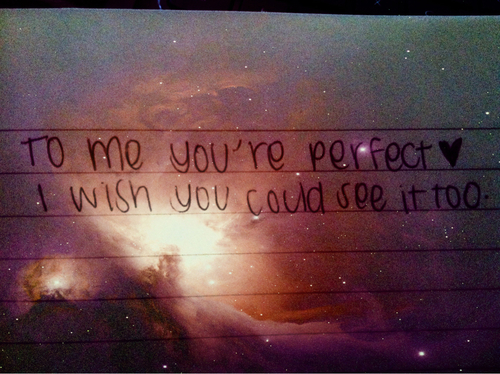 TO me you're perfect♥
I wish you could see it too.